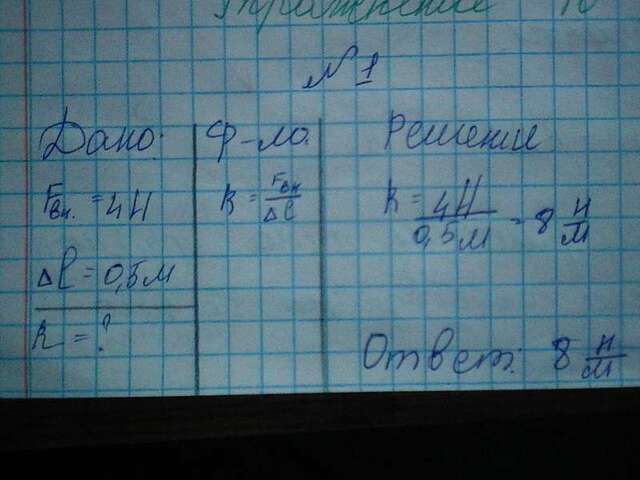 Упражнение 10
№ 1
Дано:
Fвн. = 4Н
Δl = 0,5м
k = ?
Ф-ла.
k = Fвн / Δl
Решение
k = 4Н / 0,5м = 8 Н/м
Ответ: 8 Н/м